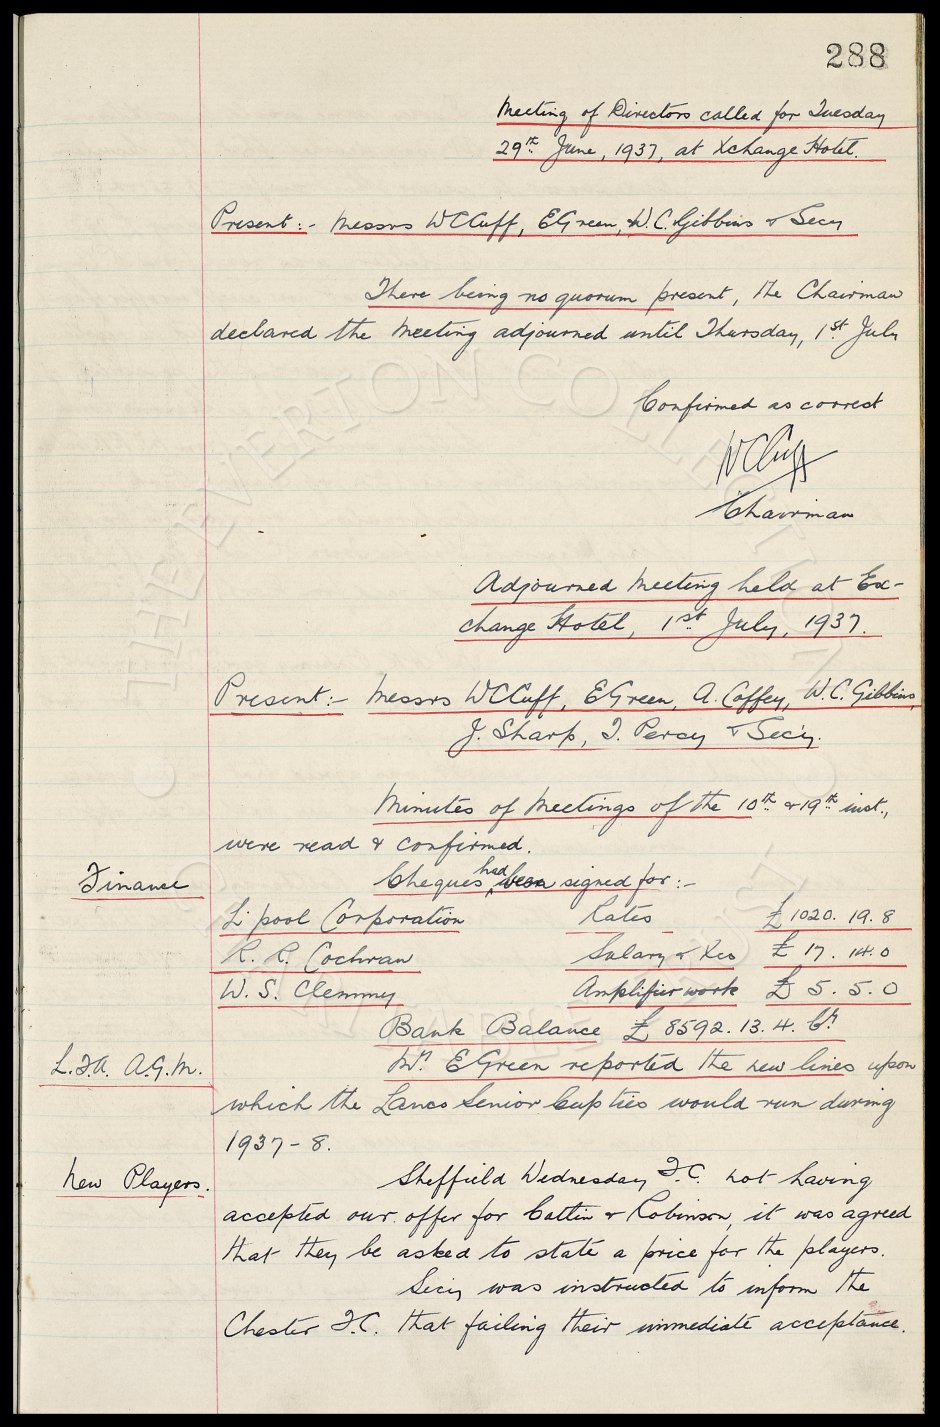 288
Meeting of Directors called for Tuesday
29th June, 1937, at Xchange Hotel.
Present:- Messrs W C Cuff, E Green, W. C. Gibbins & Secy
There being no quorum present, the Chairman
declared the Meeting adjourned until Thursday, 1st July
Confirmed as correct
W C Cuff
Chairman
Adjourned Meeting held at Ex-
change Hotel, 1st July, 1937.
Present:- Messrs W C Cuff, E Green, A. Coffey, W. C. Gibbins,
J. Sharp, T. Percy & Sec'y.
Minutes of Meetings of the 10th & 19th inst.,
were read & confirmed.
Finance Cheques had been signed for:-
L'pool Corporation Rates £1020. 19. 8
R. R. Cochran Salary & Xes £ 17. 14. 0
W. S. Clemmey Amplifier work £ 5. 5. 0
Bank Balance £ 8592. 13. 4. Cr
L.F.A. A.G.M. Mr. E Green reported the new lines upon
which the Lancs Senior Cup ties would run during
1937-8.
New Players. Sheffield Wednesday F.C. not having
accepted our offer for Catlin & Robinson, it was agreed
that they be asked to state a price for the players.
Secy was instructed to inform the
Chester F.C. that failing their immediate acceptance.
THE EVERTON COLLECTION